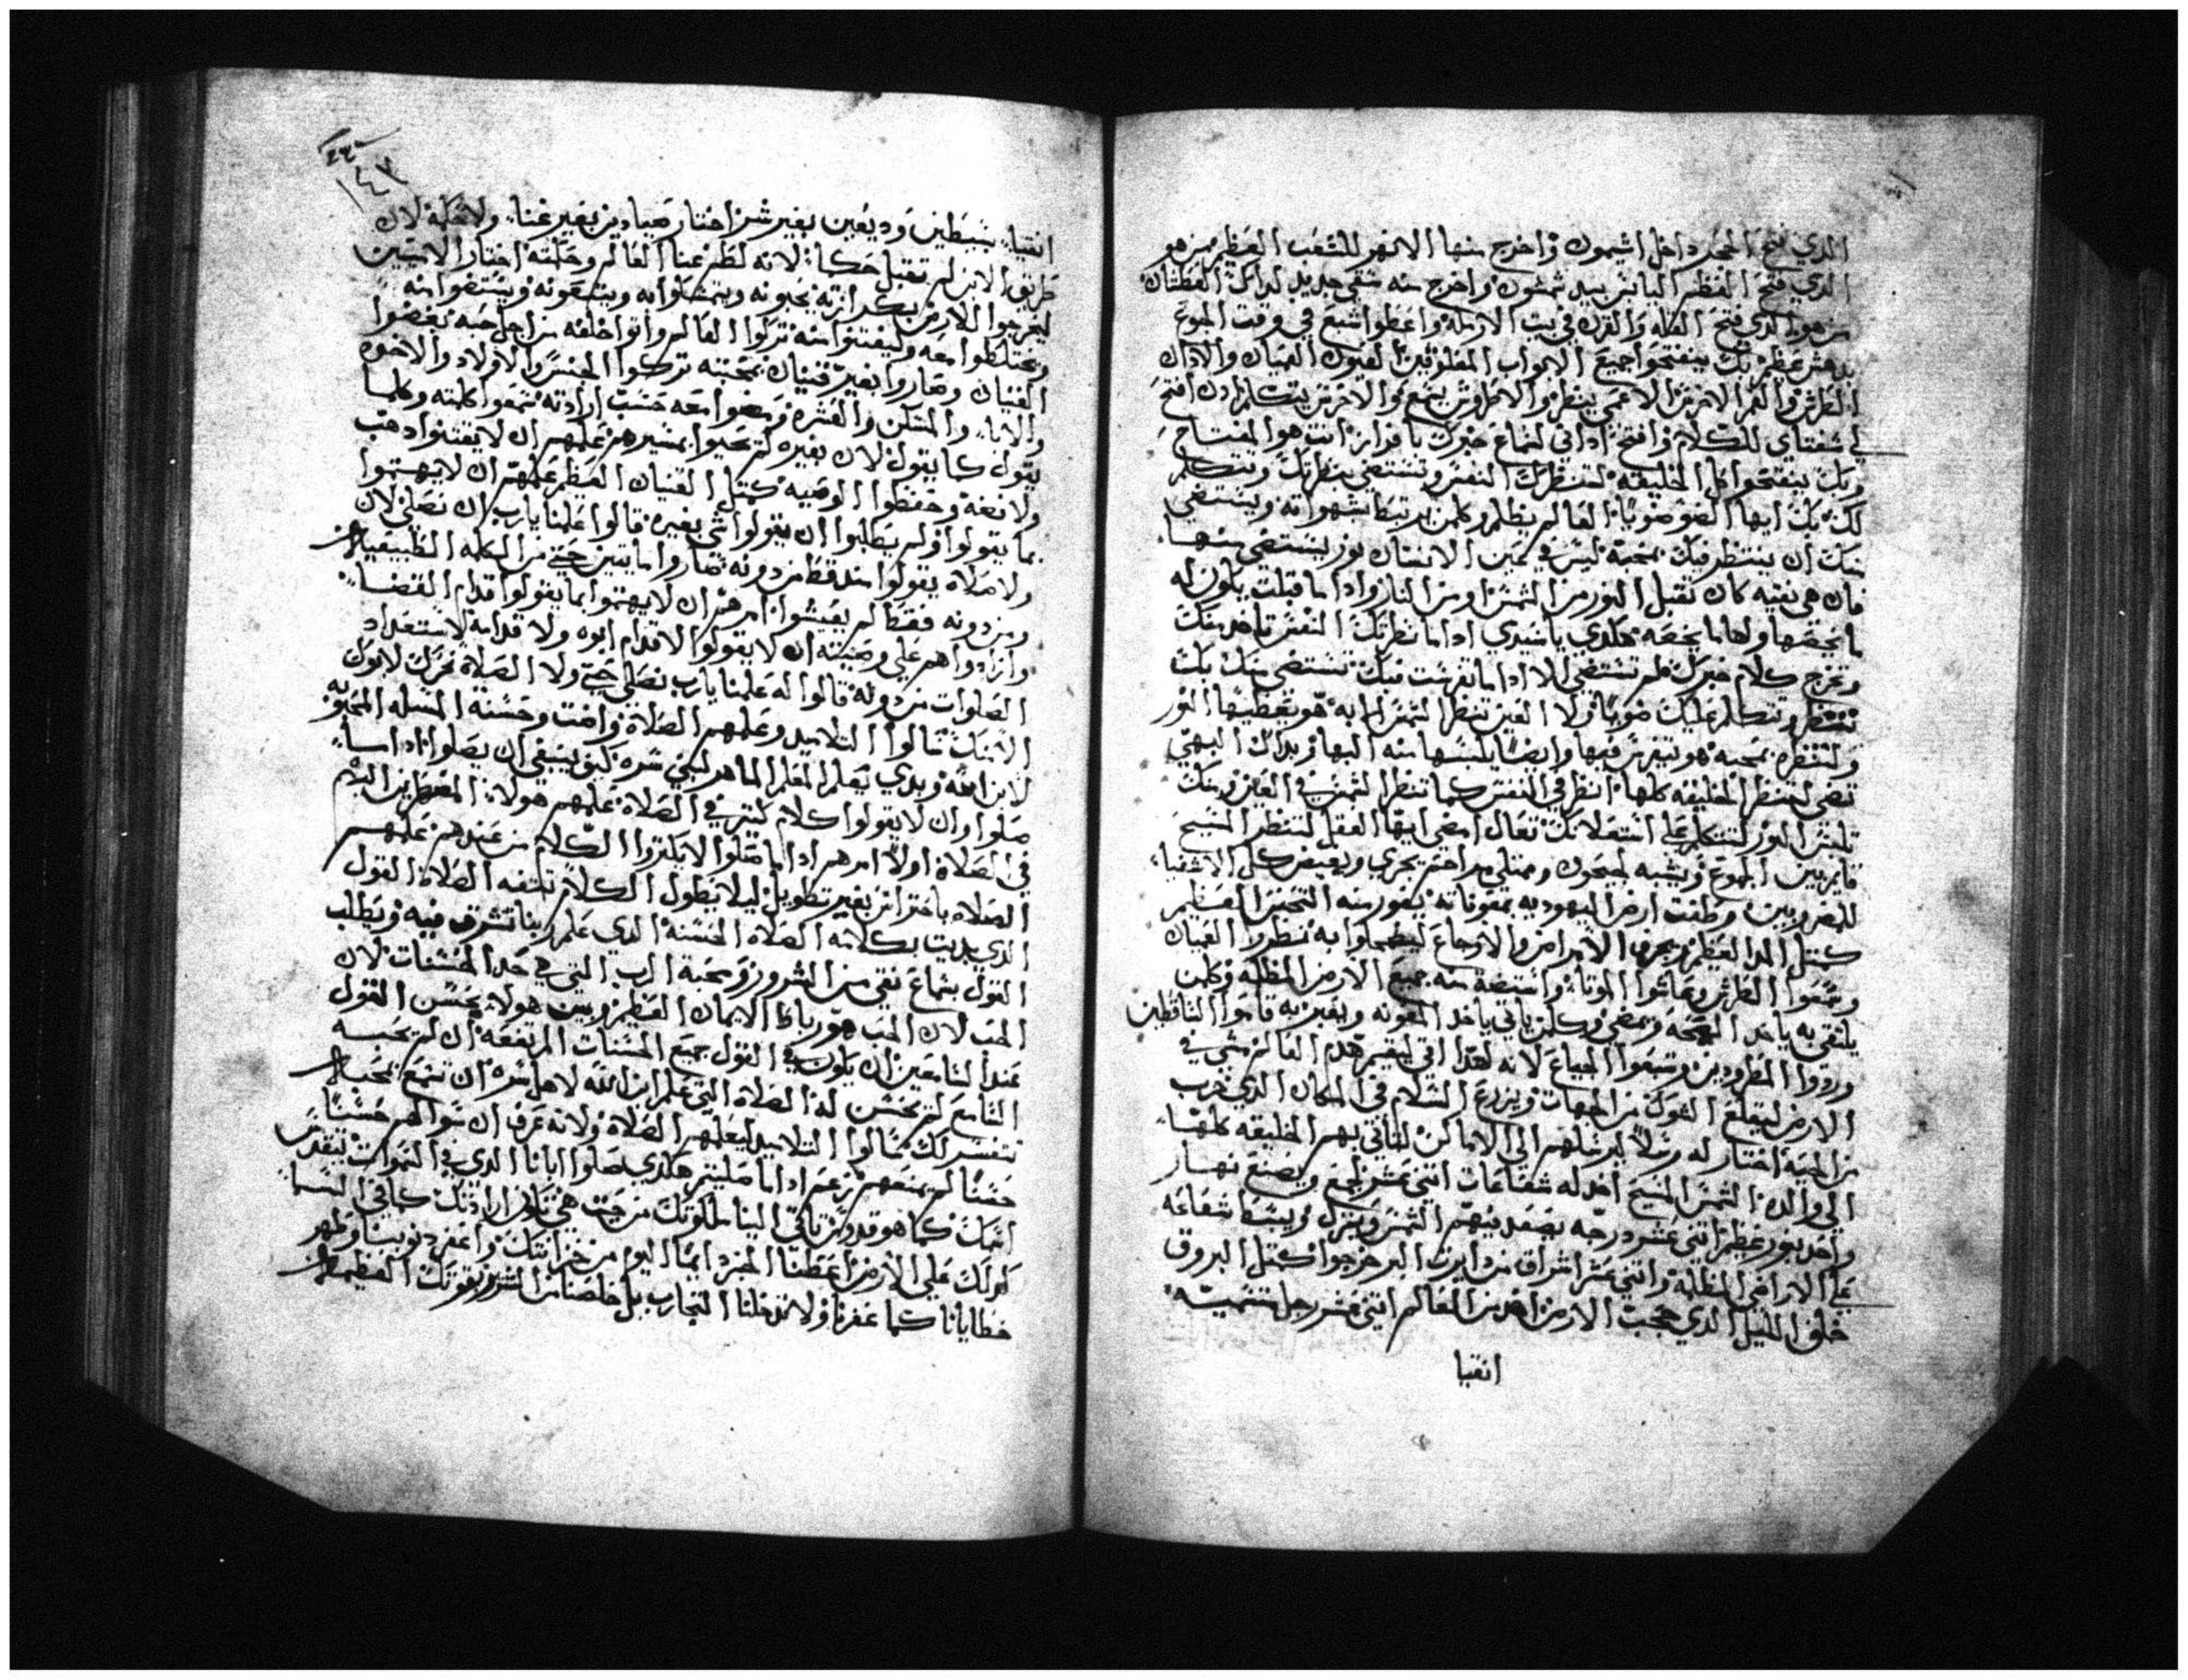 الدي فتح الحجر داخل اشيمون واخرج منها الانهر للشعب العظيم من هو
الدي فتح العظم اليابس بيد شمشون واخرج منه سقي جديد لداك العطشان
من هو الدي فتح القله والقرن في بيت الارمله واعطوا شبع في وقت الجوع
يدهش عظيم بك ينفتحوا جميع الابواب المغلوقين لعيون العميان والادان
الطرش والفم الاخرس الاعمى ينظر والاطروش يسمع والاخرس يتكلم ادن افتح
لي شفتاي للكلام وافتح اداني لسماع خبرك يا قدايز انت هوا المفتاح
وبك ينفتحوا كل الخليقه لتنظرك النفس وتستضي بنظرتك وتتكلم
لك بك ايها الضو ضويا العالم يظلم وكلمن يرتبط بشهواته ويستضي
منك ان ينتظر فيك بمحبه ليس في يمين الانسان نور ليستضي منها
فان هي نقيه كان تقبل النور من الشمس او من النار وادا ما قبلت يكون له
ما يخصها ولها ما يخصه هكدي يا سيدي ادا ما نظرتك النفس تاخد منك
وتخرج كلام خبرك فلم تستضي الا ادا ما تفرست فيك تستضي منك بك
تنتظر وتتكلم عليك ضويا ولا العين تنظر الشمس الا به هو يعطيها النور
ولتنظره بمحبه هو يتفرس فيها وايضا يلبسها منه البها وبداك البهي
تضي لتنظر الخليقه كلها انظر في النفس كما تنظر الشمس في العين ومنك
تلبس النور لتتكلم على اشتعلانك تعال امضي ايها العقل لتنظر المسيح
قايم بين الجموع ويشبه لجيحون وممتلي مراحم يجري ويفيض كل الاشفيا
للمضروبين وطفت ارض اليهوديه بمعوناته يفور منه التحنن العظيم
كمتل المد العظيم ويجرف الامراض والاوجاع ليضمحلوا به نظروا العميان
وسمعوا الطرش وعاشوا الموتا واستضت منه جميع الارض المظلمه وكلمن
يلتقي به ياخد الصحه ويمضي وكلمن ياتي ياخد المعونه ويعبر به قاموا الساقطين
وردوا المطرودين وشبعوا الجياع لانه لهدا اتى ليقيم هدم العالم مشي في
الارض ليقلع الشوك من الجهات ويزرع السلام في المكان الدي خرب
من الحيه اختار له رسلا ليرسلهم الي الاماكن لتاتي بهم الخليقه كلها
الي والده الشمس المسيح اخد له شعاعات اتني عشر لجمع ويصنع نهار
واحد بنور عظيم اتني عشر درجه يصعد فيهم الشمس وينزل ويبسط شعاعه
على الاراضي المظلمه واتني عشر اشراق من دايرت البر خرجوا كمتل البروق
خلف الليل الدي حجبت الارض اخد من العالم اتني عشر رجل بتسميته
انقيا
انقيا بسيطين وديعين بغير شر اختار صيادين بغير غنا ولا حكمه لان
طريق الابن لم تقبل حكما لانه لطم غنا العالم وحكمته اختار الاميين
ليفرحوا الارض بكرازته يحبونه ويتمسكوا به ويتبعونه ويستقوا منه
ويختلطوا معه وليغتنوا منه تركوا العالم واتوا خلفه من اجل حبه بغضوا
القنيان وصاروا بغير قنيان بمحبته تركوا الجنس والاولاد والاخوه
والابا والمسكن والعشره ومضوا معه حسب ارادته سمعوا كلمته وكلما
يقول كما يقول لان بغيره لم تحيوا بمسيرهم علمهم ان لا يقتنوا دهب
ولا فضه وحفظوا الوصيه كمتل القنيان العظيم علمهم ان لا يهتموا
بما يقولوا ولم يطلبوا ان يقولوا شي بغيره قالوا علمنا يارب ان نصلي لان
ولا صلاه يقولوا عنده قط من دونه صاروا مايتين حتي من الكلمه الطبيعيه
ومن دونه فقط لم يعيشوا امرهم ان لا يهتموا بما يقولوا قدام القضا
وازادوا هم على وصيته ان لا يقولوا الا قدام ابوه ولا قدامه لاستعداد
الصلوات من دونه قالوا له علمنا يارب نصلي حتي ولا الصلاه تحرك لابوك
الا منك سالوا التلاميد وعلمهم الصلاه واضت وحسنة المسله المحبوبه
لابن الله وبدي يعلم المعلم الماهر لبني سره كيف ينبغي ان يصلوا ادا ما
صلوا وان لا يقولوا كلام كتير في الصلاه علمهم هولا المعطرين البدم
في الصلاه اولا امرهم ادا ما صلوا لا يكتروا الكلام من عندهم علمهم
الصلاه باحتراس بغير تطويل ليلا يطول الكلام تكتفه الصلاه القول
الدي بديت بكلامه الصلاه الحسنه الدي علم ربنا تشرق فيه ويطلب
القول بسماع نقي من الشرور ومحبة الرب التي هي حد الحسنات لان
الحب لان الحب هو رباط الايمان العظيم وبين هولا يحسن القول
عند السامعين ان يكون في القول جميع الحسنات المرتفعه ان لم يحبه
السامع لم يحسن له الصلاه التي علم ابن الله لاهل سره ان تسمع بحب
تتفسر لك سالوا التلاميد ليعلمهم الصلاه ولانه عرف ان سوالهم حسنا
حسنا لم يمنعهم زعم ادا ما صليتم هكدي صلوا ابانا الدي في السموات يتقدس
اسمك كما هو قدوس تاتي الينا ملكوتك من حيت هي تكون ارادتك كما في السما
كدلك على الارض اعطنا الخبز دايما اليوم من خزانتك واغفر دنوبنا وطهر
خطايانا كما غفرنا ولا تدخلنا التجارب بل خلصنا من الشرير بقوتك العظيمه